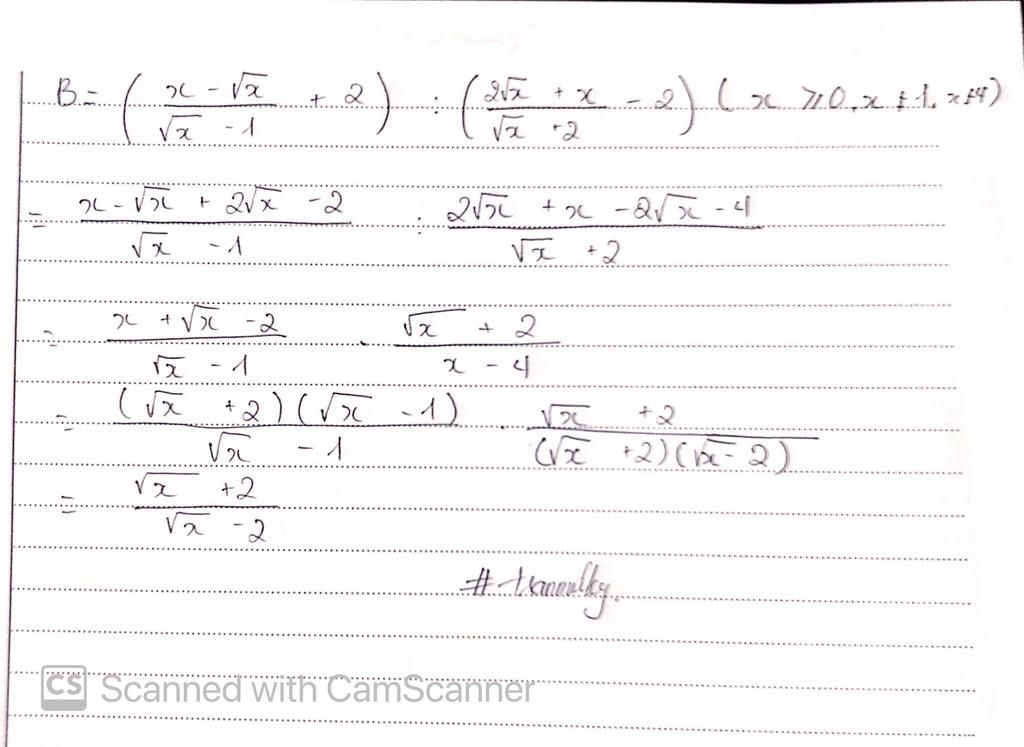 B = ( (x - √x)/(√x - 1) + 2 ) : ( (2√x + x)/(√x + 2) - 2 ) ( x ⩾ 0, x ≠ 1, x ≠ 4)
= (x - √x + 2√x - 2)/(√x - 1) : (2√x + x - 2√x - 4)/(√x + 2)
= (x + √x - 2)/(√x - 1) . (√x + 2)/(x - 4)
= ((√x + 2)(√x - 1))/(√x - 1) . (√x + 2)/((√x + 2)(√x - 2))
= (√x + 2)/(√x - 2)
CS Scanned with CamScanner